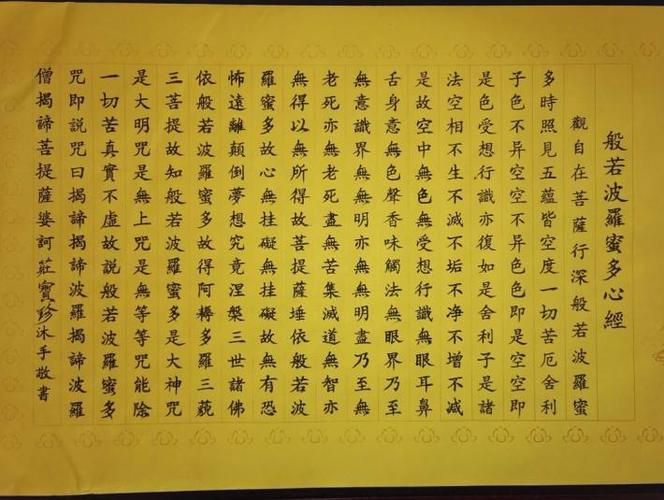 般若波羅蜜多心經
觀自在菩薩行深般若波羅蜜
多時照見五蘊皆空度一切苦厄舍利
子色不异空空不异色色即是空空即
是色受想行識亦復如是舍利子是諸
法空相不生不滅不垢不净不增不減
是故空中無色無受想行識無眼耳鼻
舌身意無色聲香味觸法無眼界乃至
無意識界無無明亦無無明盡乃至無
老死亦無老死盡無苦集滅道無智亦
無得以無所得故菩提薩埵依般若波
羅蜜多故心無挂礙無挂礙故無有恐
怖遠離顛倒夢想究竟涅槃三世諸佛
依般若波羅蜜多故得阿耨多羅三藐
三菩提故知般若波羅蜜多是大神咒
是大明咒是無上咒是無等等咒能除
一切苦真實不虛故説般若波羅蜜多
咒即説咒曰揭諦揭諦波羅揭諦波羅
僧揭諦菩提薩婆訶 莊寳珍沐手敬書